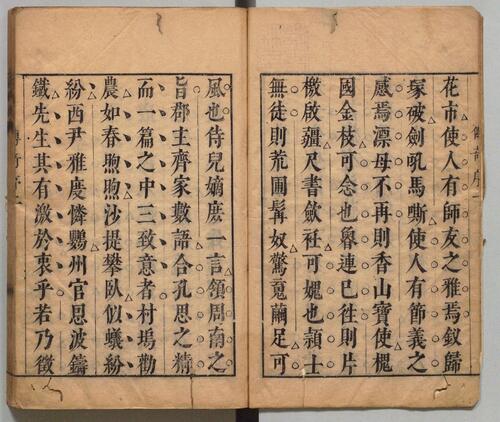 花市使人有師友之雅焉釵歸
塚破劍吼馬嘶使人有節義之
感焉漂母不再則香山寶使槐
國金枝可念也魯連已往則片
檄啟疆尺書斂衽可媿也頴士
無徒則荒圃髯奴驚寃繭足可
風也侍兒嫡庶一言領周南之
旨郡主齊家數語合孔思之精
而一篇之中三致意者村塢勸
農如春煦煦沙提攀臥似蟻紛
紛西尹雅慶憐鸚州官恩波鑄
鐵先生其有激於衷乎若乃徵